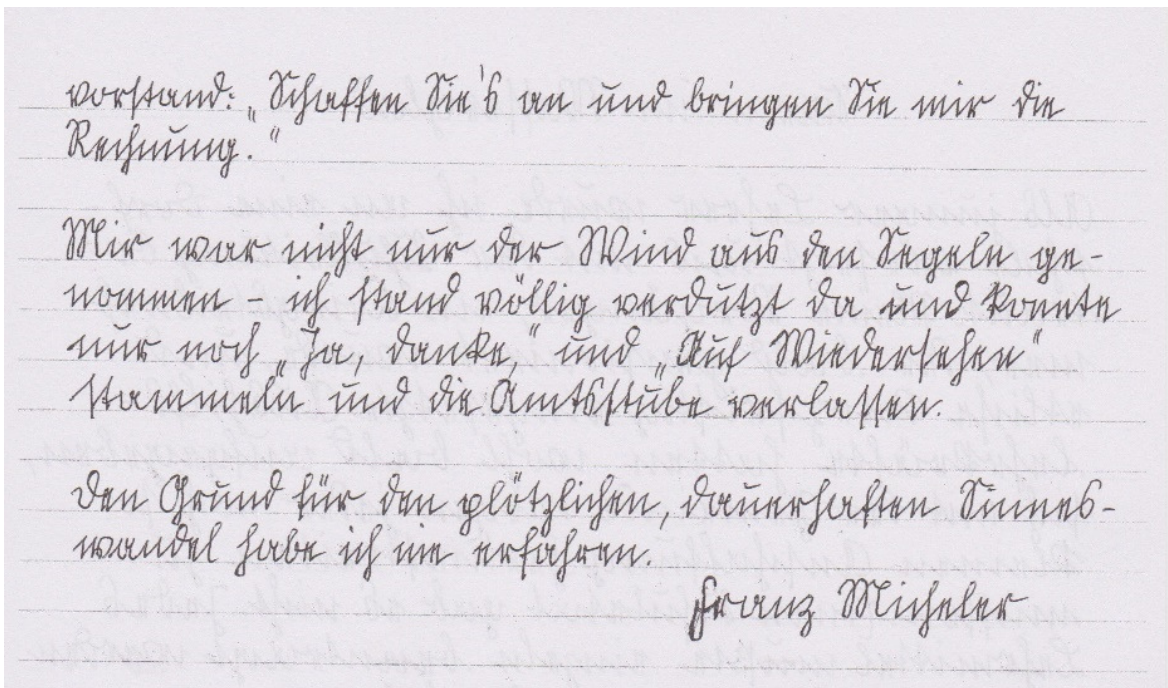 vorstand: „Schaffen Sie's an und bringen Sie mir die
Rechnung.“
Mir war nicht nur der Wind aus den Segeln ge-
nommen – ich stand völlig verdutzt da und konnte
nur noch „Ja, danke,“ und „Auf Wiedersehen“
stammeln und die Amtsstube verlassen.
Den Grund für den plötzlichen, dauerhaften Sinnes-
wandel habe ich nie erfahren.
Franz Micheler